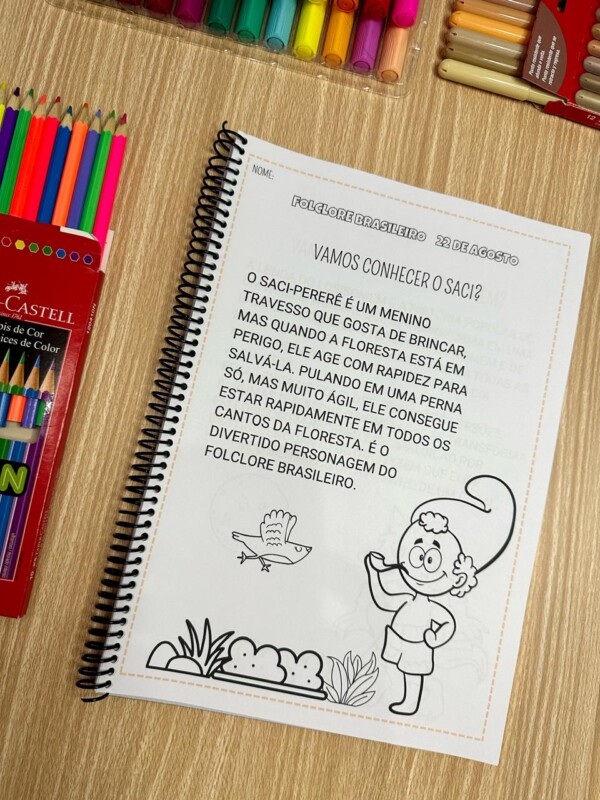 NOME:
FOLCLORE BRASILEIRO 22 DE AGOSTO
VAMOS CONHECER O SACI?
O SACI-PERERÊ É UM MENINO
TRAVESSO QUE GOSTA DE BRINCAR,
MAS QUANDO A FLORESTA ESTÁ EM
PERIGO, ELE AGE COM RAPIDEZ PARA
SALVÁ-LA. PULANDO EM UMA PERNA
SÓ, MAS MUITO ÁGIL, ELE CONSEGUE
ESTAR RAPIDAMENTE EM TODOS OS
CANTOS DA FLORESTA. É O
DIVERTIDO PERSONAGEM DO
FOLCLORE BRASILEIRO.
-CASTELL
is de Cor
ices de Color
N
12